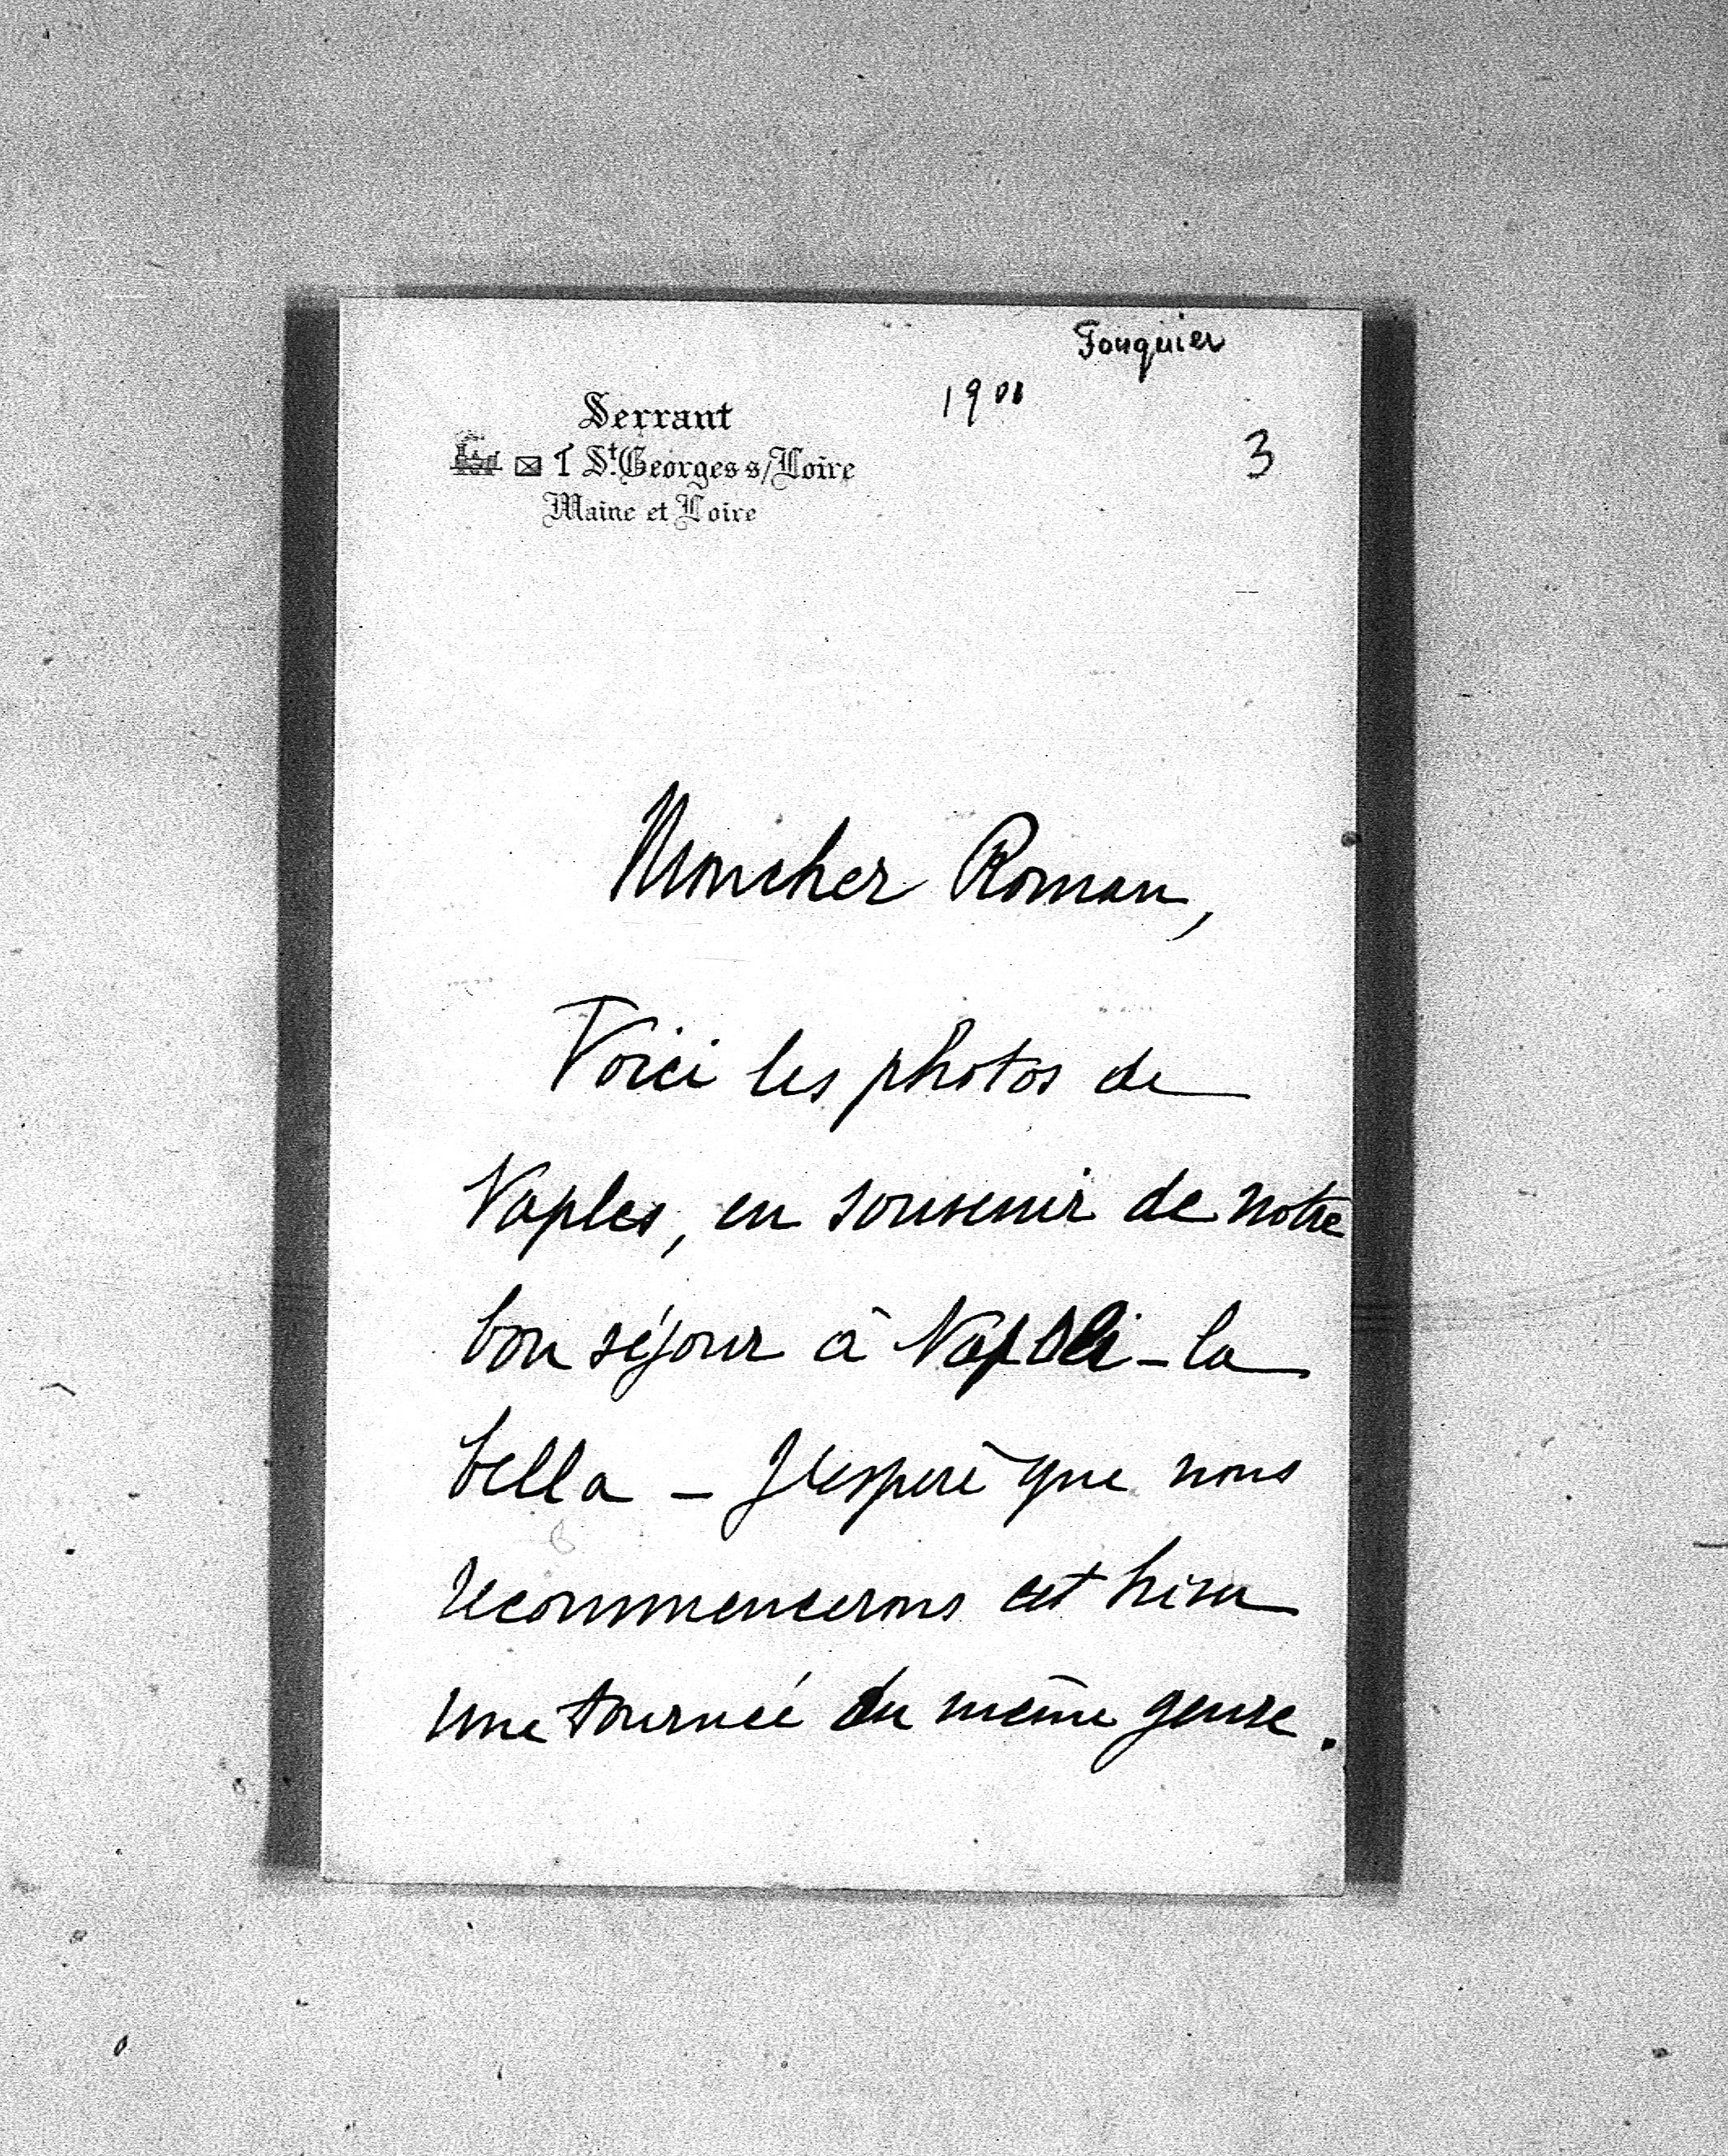 Fouquier
1901
3
Serrant
T St. Georges s/Loire
Maine et Loire
Mon cher Roman,
Voici les photos de
Naples, en souvenir de notre
bon séjour à Napoli-la
bella - J'espère que nous
recommencerons cet hiver
une tournée du même genre.